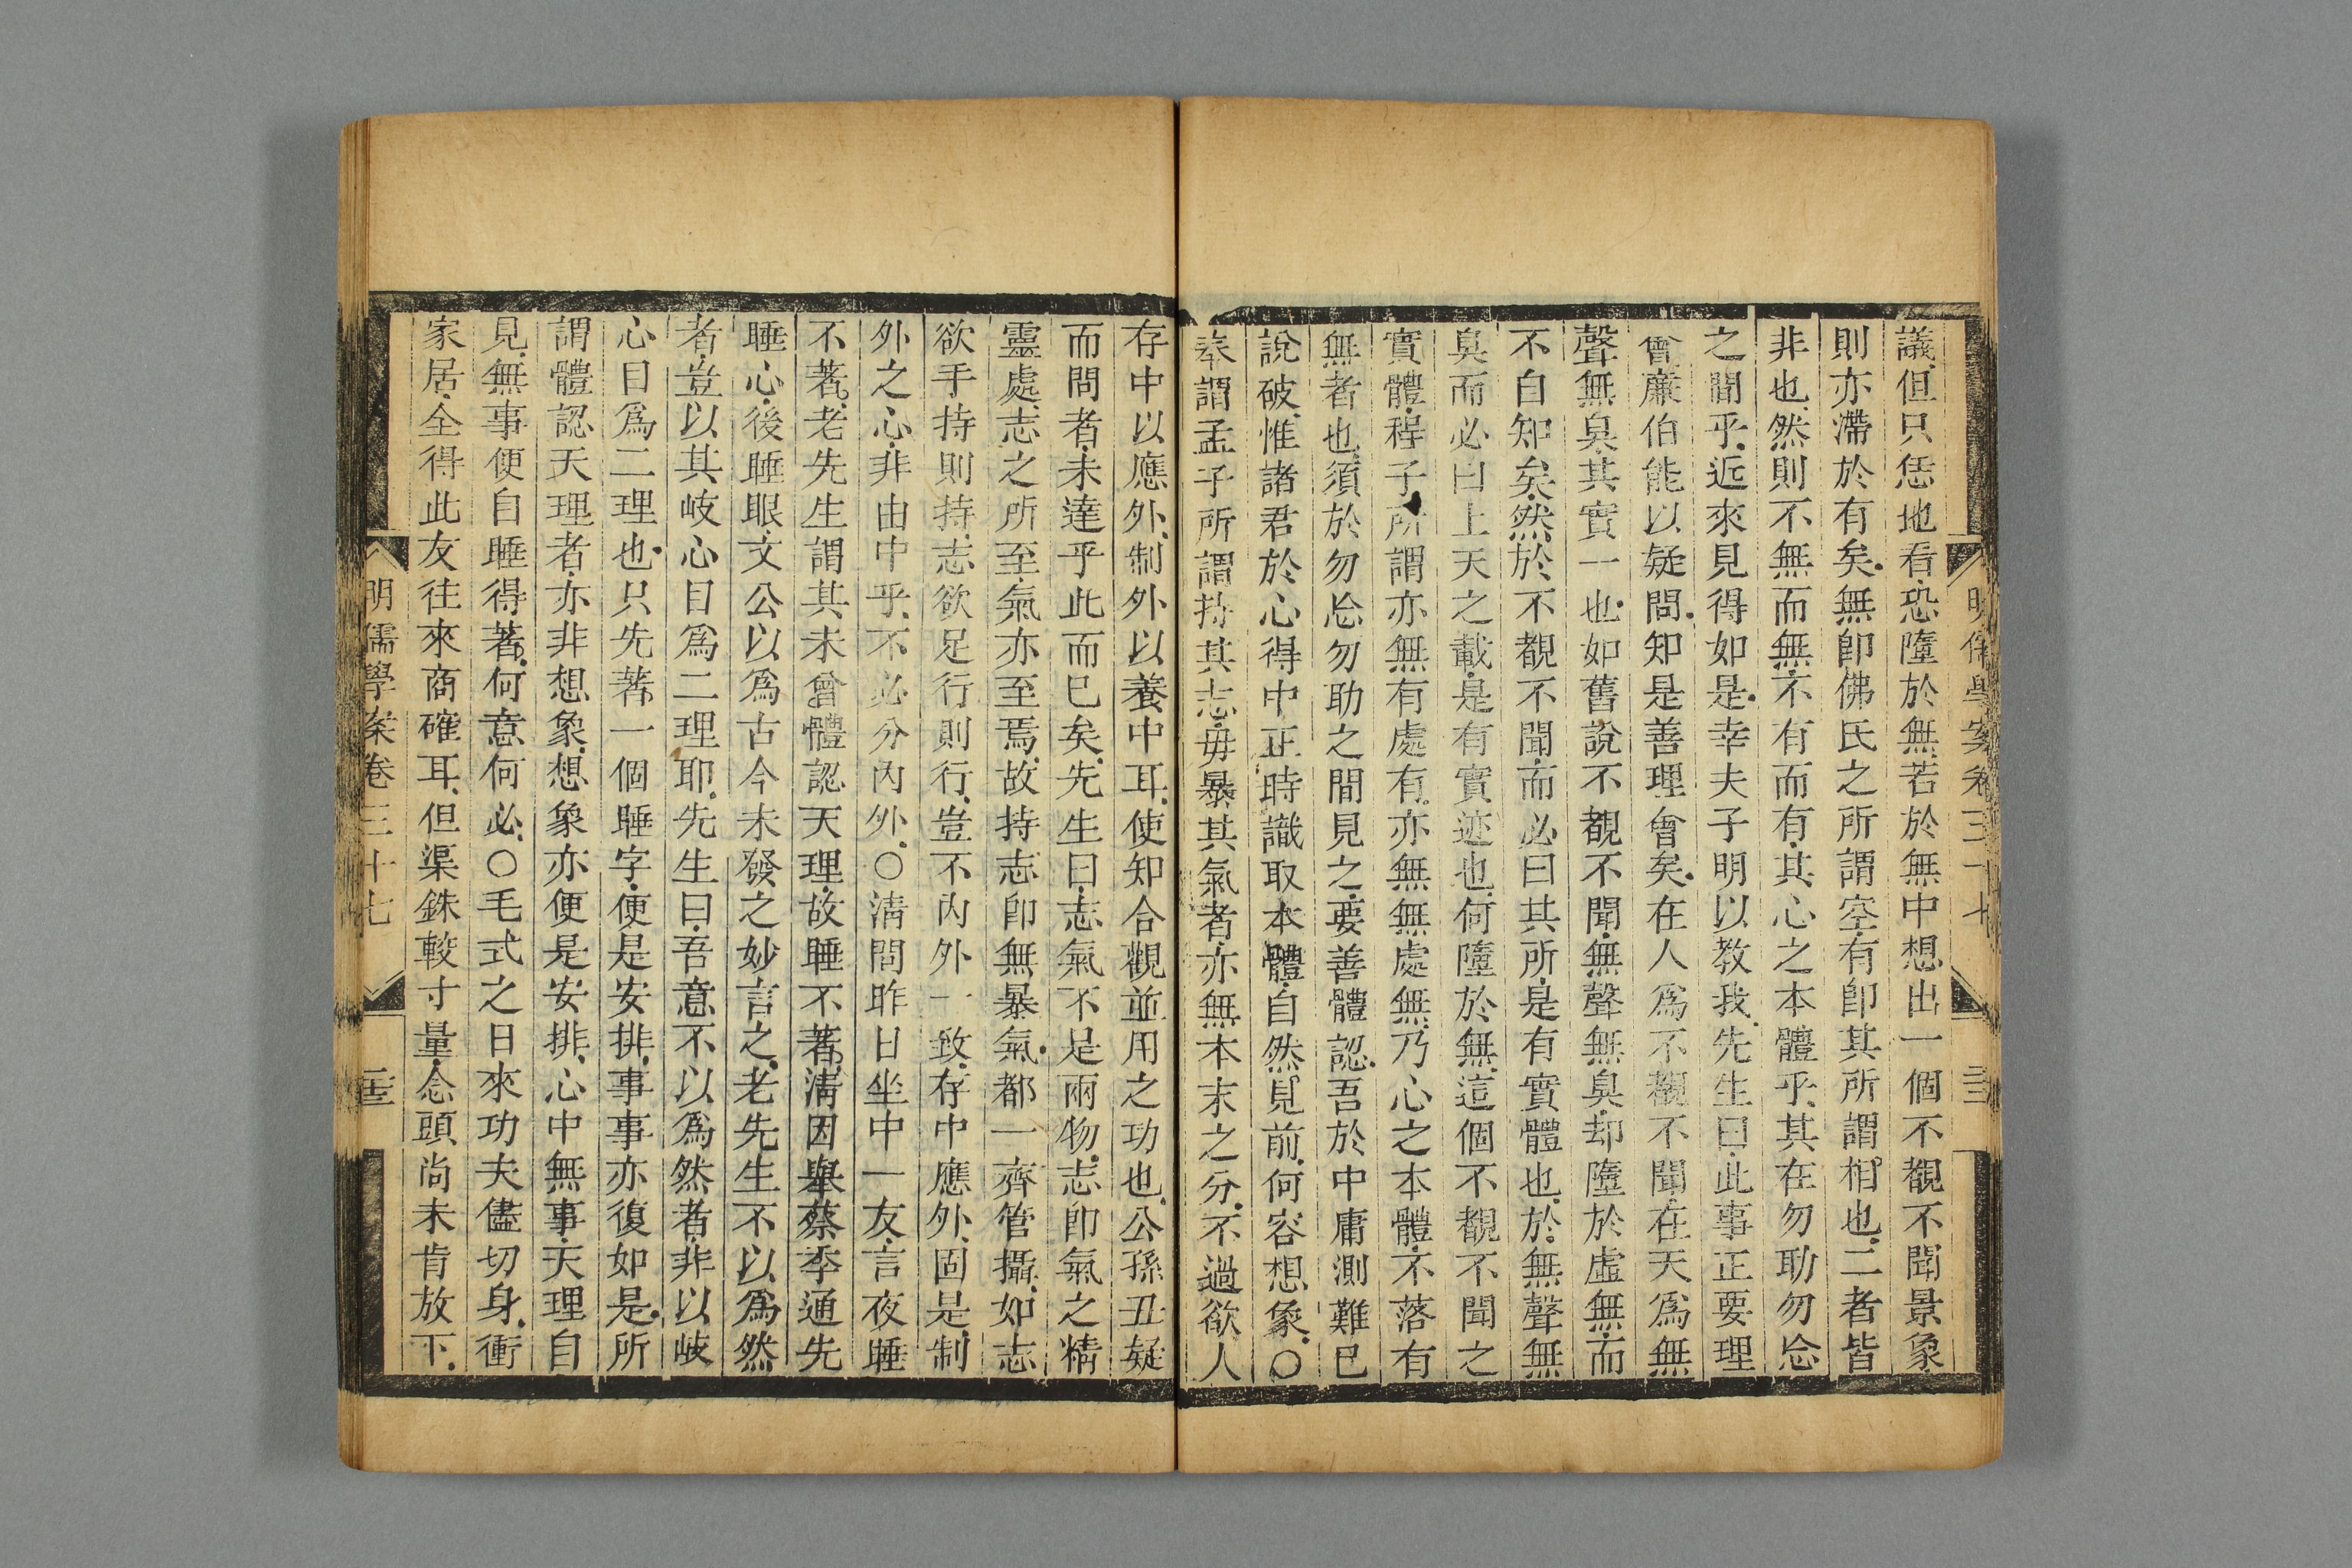 議但只恁地看恐墮於無若於無中想出一個不覩不聞景象
則亦滯於有矣無卽佛氏之所謂空有卽其所謂相也二者皆
非也然則不無而無不有而有其心之本體乎其在勿助勿忘
之間乎近來見得如是幸夫子明以教我先生曰此事正要理
會廉伯能以疑問知是善理會矣在人爲不覩不聞在天爲無
聲無臭其實一也如舊說不覩不聞無聲無臭却墮於虛無而
不自知矣然於不覩不聞而必曰其所是有實體也於無聲無
臭而必曰上天之載是有實迹也何墮於無這個不覩不聞之
實體程子所謂亦無有處有亦無無處無乃心之本體不落有
無者也須於勿忘勿助之間見之要善體認吾於中庸測難已
說破惟諸君於心得中正時識取本體自然見前何容想象○
奉謂孟子所謂持其志毋暴其氣者亦無本末之分不過欲人
存中以應外制外以養中耳使知合觀並用之功也公孫丑疑
而問者未達乎此而已矣先生曰志氣不是兩物志卽氣之精
靈處志之所至氣亦至焉故持志卽無暴氣都一齊管攝如志
欲手持則持志欲足行則行豈不內外一致存中應外固是制
外之心非由中乎不必分內外○淸問昨日坐中一友言夜睡
不著老先生謂其未曾體認天理故睡不著淸因舉蔡季通先
睡心後睡眼文公以爲古今未發之妙言之老先生不以爲然
者豈以其岐心目爲二理耶先生曰吾意不以爲然者非以岐
心目爲二理也只先著一個睡字便是安排事事亦復如是所
謂體認天理者亦非想象想象亦便是安排心中無事天理自
見無事便自睡得著何意何必○毛式之日來功夫儘切身衝
家居全得此友往來商確耳但渠銖較寸量念頭尚未肯放下
明儒學案卷三十七